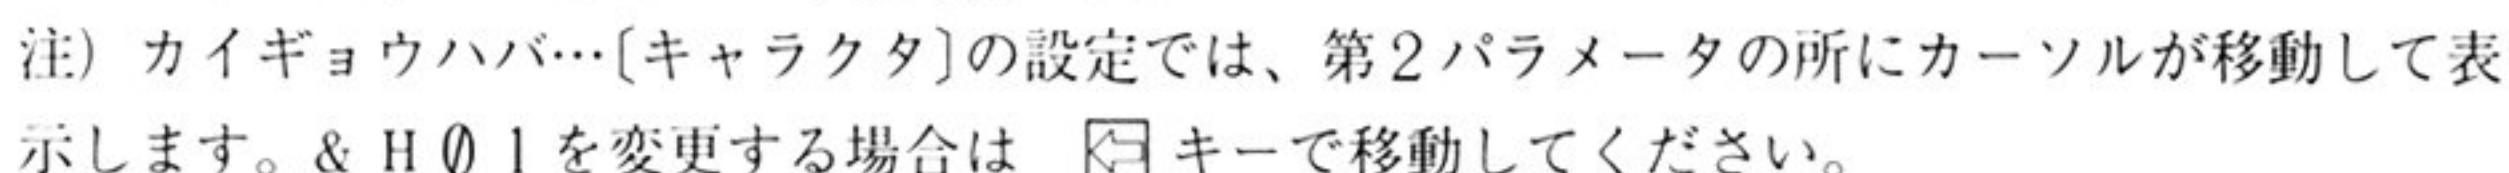 注) カイギョウハバ…〔キャラクタ〕の設定では、第2パラメータの所にカーソルが移動して表
示します。& H 0 1 を変更する場合は ⇦ キーで移動してください。